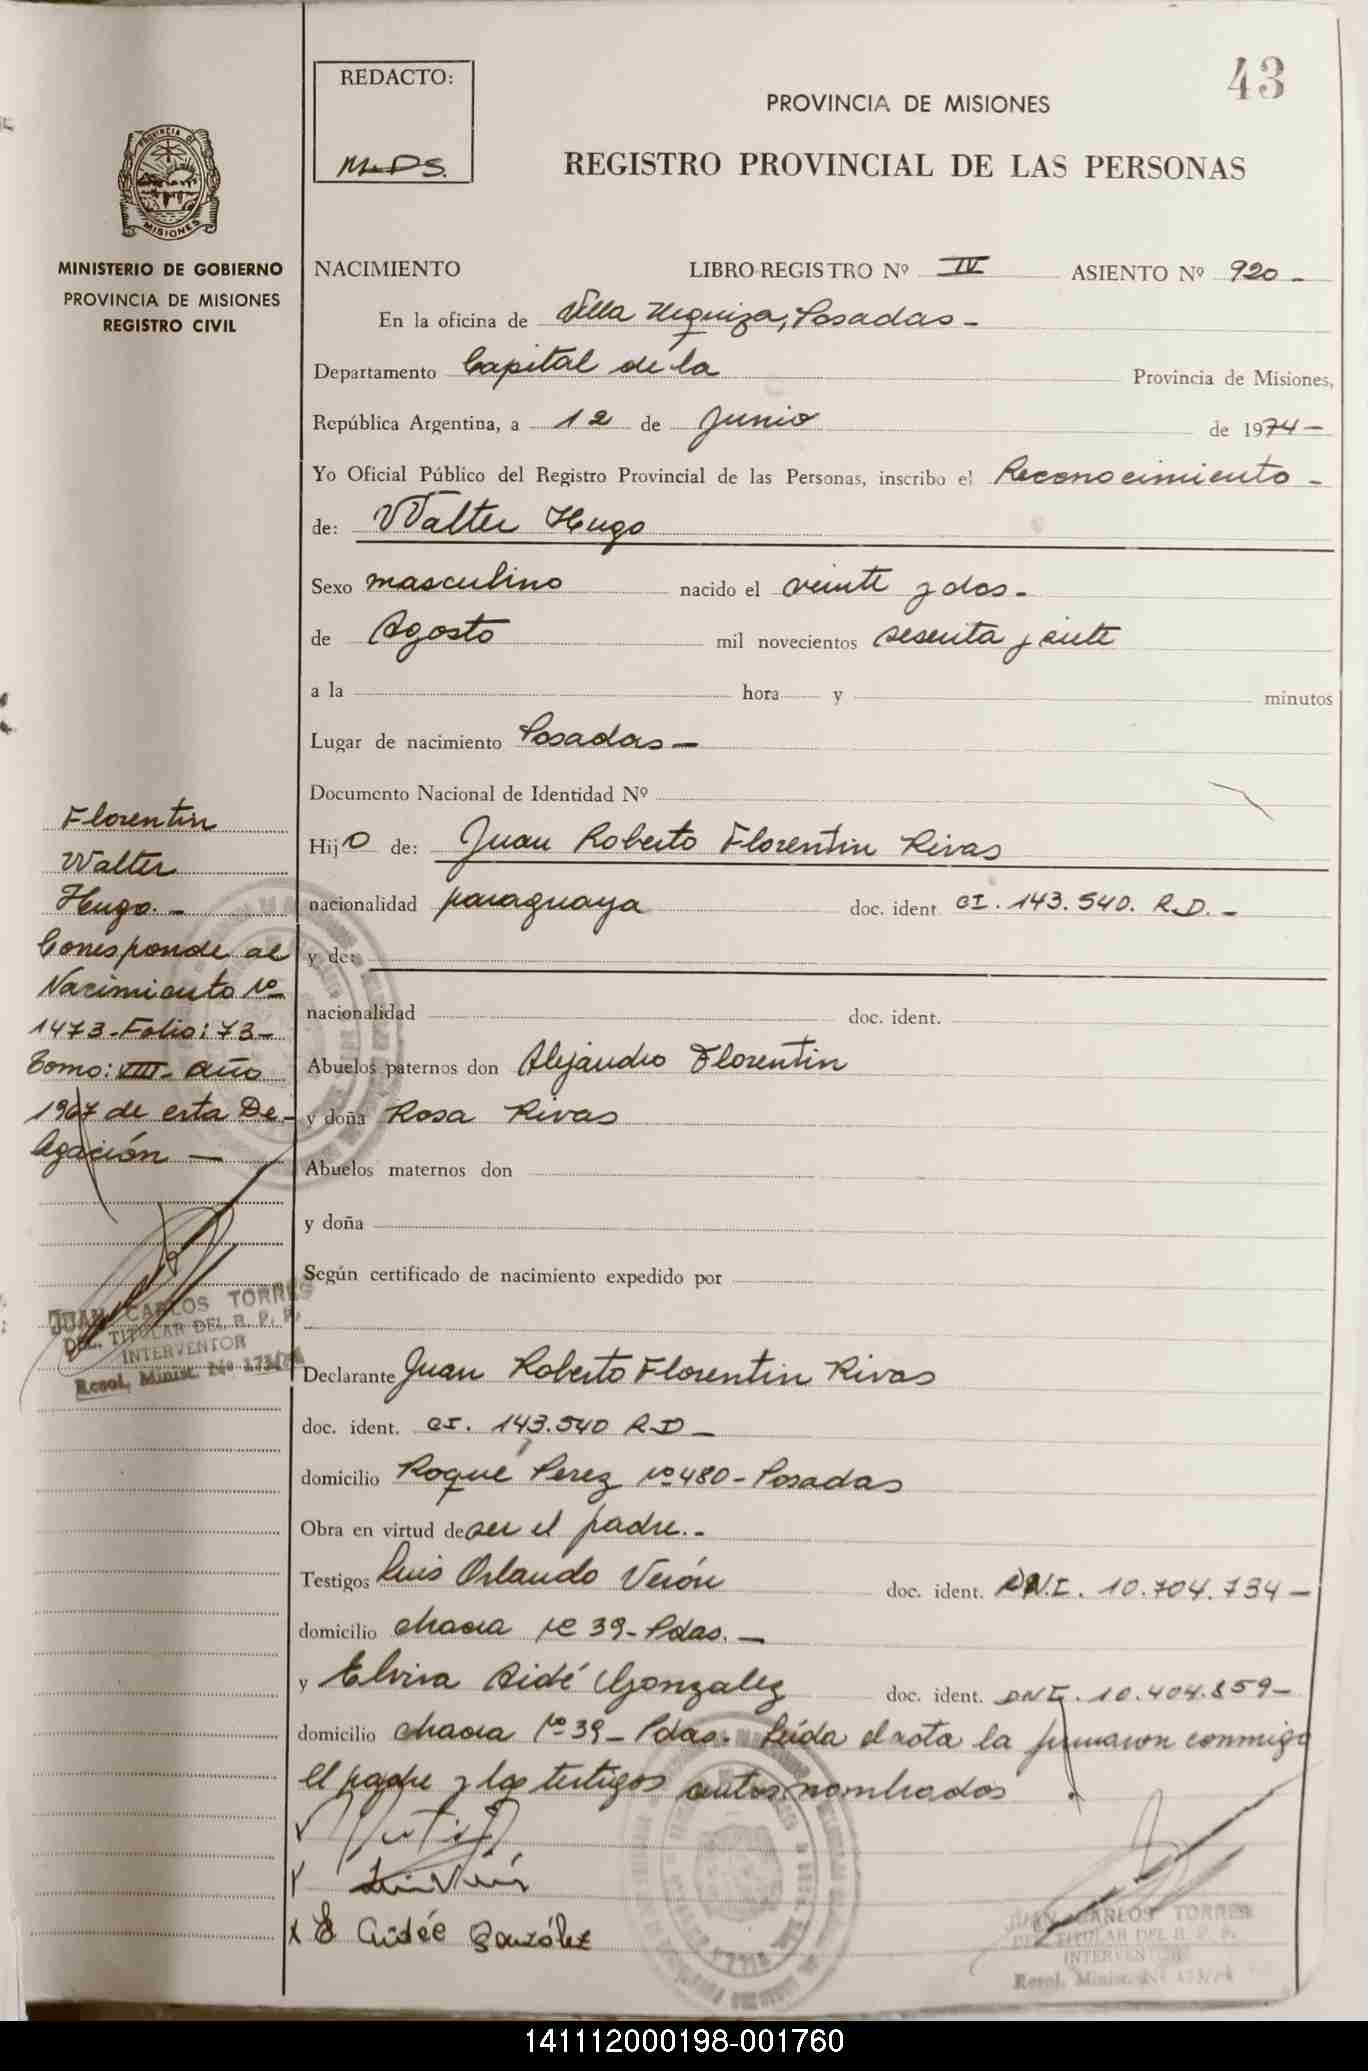 43
REDACTO:
M.DS.
PROVINCIA DE MISIONES
REGISTRO PROVINCIAL DE LAS PERSONAS
PROVINCIA DE
MISIONES
MINISTERIO DE GOBIERNO
PROVINCIA DE MISIONES
REGISTRO CIVIL
NACIMIENTO LIBRO REGISTRO Nº IV ASIENTO Nº 920 -
En la oficina de Villa Urquiza, Posadas -
Departamento Capital de la Provincia de Misiones,
República Argentina, a 12 de Junio de 1974 -
Yo Oficial Público del Registro Provincial de las Personas, inscribo el Reconocimiento -
de: Walter Hugo
Sexo masculino nacido el veinte y dos -
de Agosto mil novecientos sesenta y siete
a la hora y minutos
Lugar de nacimiento Posadas -
Documento Nacional de Identidad Nº
Hijo de: Juan Roberto Florentin Rivas
nacionalidad paraguaya doc. ident. CI. 143.540. R.D. -
y de:
nacionalidad doc. ident.
Abuelos paternos don Alejandro Florentin
y doña Rosa Rivas
Abuelos maternos don
y doña
Según certificado de nacimiento expedido por
Declarante Juan Roberto Florentin Rivas
doc. ident. CI. 143.540 R.D -
domicilio Roque Perez Nº 480 - Posadas
Obra en virtud de ser el padre. -
Testigos Luis Orlando Verón doc. ident. DN.I. 10.704.734 -
domicilio chacra Nº 39 - Pdas. -
y Elvira Aidé Gonzalez doc. ident. DNI. 10.404.859 -
domicilio chacra Nº 39 - Pdas. Leída el acta la firmaron conmigo
el padre y los testigos antes nombrados
Luis Verón
X E Aidée González
JUAN CARLOS TORRES
DEL. TITULAR DEL R. P. P.
INTERVENTOR
Resol. Minist. Nº 173/74
Florentin
Walter
Hugo. -
Corresponde al
Nacimiento Nº
1473 - Folio: 73 -
Tomo: VIII - Año
1967 de esta De-
legación -
JUAN CARLOS TORRES
DEL. TITULAR DEL R. P. P.
INTERVENTOR
Resol. Minist. Nº 173/74
141112000198-001760